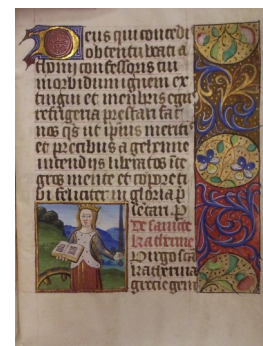 Deus qui concedis
obtentu beati a
thonij confessoris tui
morbidum ignem ex
tingui et membris egris
refrigeria prestari fac
nos q̄s ut ipsius meritis
et precibus a gehenne
incendijs liberatos
mente et corpore ti
bi feliciter in gloria p̄
sentari. P
De sancta
katherina
Virgo sc̄a
katherina
grecie gem